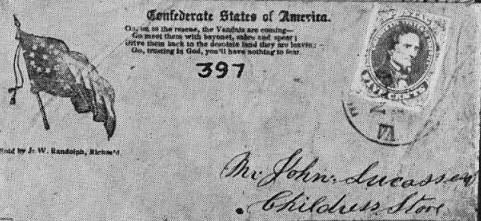 Confederate States of America.
On, on to the rescue, the Vandals are coming—
Go meet them with bayonet, sabre and spear;
Drive them back to the desolate land they are leaving;
Go, trusting in God, you'll have nothing to fear.
397
Sold by J. W. Randolph, Richm'd.
VA
Mr John Lucassen
Childress Store